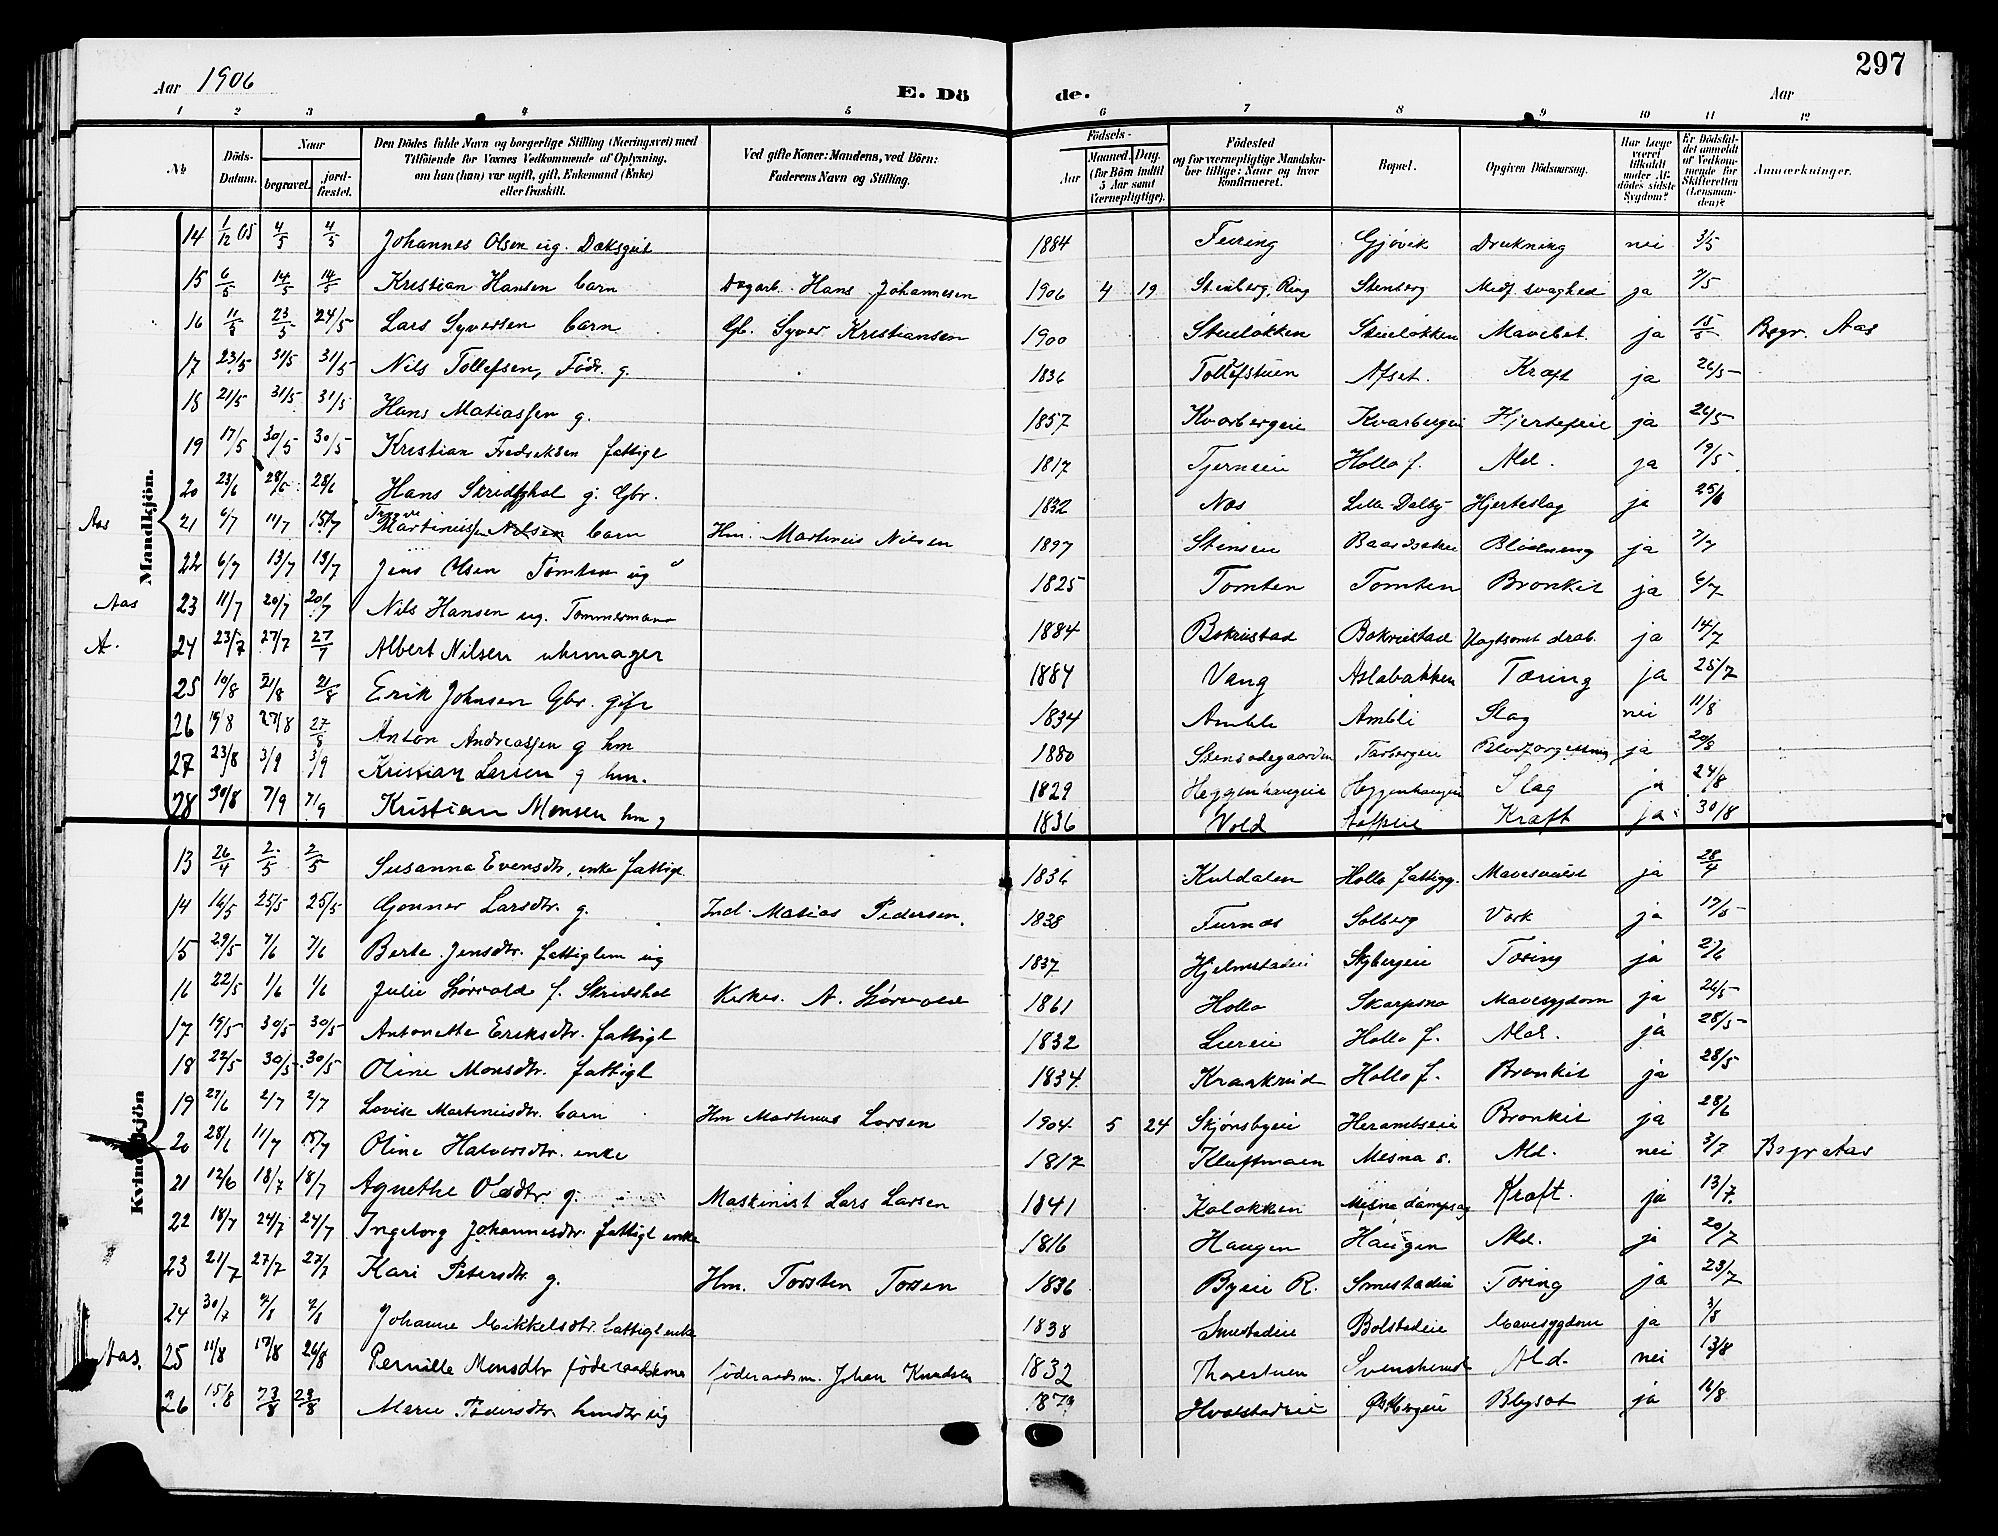 Aar 1906 E. Dö de. Aar 297
1 2 3 4 5 6 7 8 9 10 11 12
No Döds-Datum. Naar begravet. jord-fæstet. Den Dödes fulde Navn og borgerlige Stilling (Næringsvei) med Tilföiende for Voxnes Vedkommende af Oplysning, om han (hun) var ugift, gift, Enkemand (Enke) eller fraskilt. Ved gifte Koner: Mandens, ved Börn: Faderens Navn og Stilling. Födsels- Aar Maaned. Dag. (for Börn indtil 5 Aar samt Værnepligtige). Födested og for værnepligtige Mandskaber tillige: Naar og hvor konfirmeret. Bopæl. Opgiven Dödsaarsag. Har Læge været tilkaldt under Afdödes sidste Sygdom? Er Dödsfaldet anmeldt af Vedkommende for Skifteretten (Lensmanden)? Anmærkninger.
Mandkjön.
14 1/12 05 4/5 4/5 Johannes Olsen ug. Dæksgut 1884 Feiring Gjøvik Drukning nei 3/5
15 6/5 14/5 14/5 Kristian Hansen barn Dagarb. Hans Johannesen 1906 4 19 Stenberg, Ring Stenberg Medf. svaghed ja 7/5
16 11/5 23/5 24/5 Lars Syversen barn Gb. Syver Kristiansen 1900 Mavebet. ja 15/5 Begr. Aas
17 23/5 31/5 31/5 Nils Tollefsen, Föder. g. 1836 Tollefstuen Afset. Kræft ja 26/5
18 21/5 31/5 31/5 Hans Matiassen g. 1857 Kvarbergeie Kvarbergeie Hjertefeil ja 26/5
19 17/5 30/5 30/5 Kristian Fredriksen fattigl 1817 Tjerneie Hollo f. Ald. ja 19/5
20 23/6 28/6 28/6 Hans Skridshol g. Gbr. 1832 Nes Lille Dalby Hjerteslag ja 25/6
Aas 21 6/7 11/7 15/7 Trygve Martiniussen Nilsen barn Hm. Martinus Nilsen 1897 Stenseie Blödning ja 7/7
22 6/7 13/7 13/7 Jens Olsen Tomten ug 1825 Tomten Tomten Bronkit ja 6/7
Aas 23 11/7 20/7 20/7 Nils Hansen ug. Tømmermand 1884 Bokrustad Bokrustad Uagtsomt drab. ja 14/7
A. 24 23/7 27/7 27/7 Albert Nilsen uhrmager 1884 Vang Aslabakken Tæring ja 25/7
25 10/8 21/8 21/8 Erik Johnsen Gbr. gift 1834 Amble Ambli Slag nei 11/8
26 19/8 27/8 27/8 Anton Andreassen g hm 1880 Stensodegaarden Tarbergeie Blodforgiftning ja 20/8
27 23/8 3/9 3/9 Kristian Larsen g hm. 1829 Heggenhaugeie Heggenhaugeie Slag ja 24/8
28 30/8 7/9 7/9 Kristian Monsen hm g 1836 Vold Kræft ja 30/8
Kvindekjön
13 26/4 2/5 2/5 Susanna Evensdtr, enke fattigl 1836 Kuldalen Hollo fattigg. ja 28/4
14 16/5 25/5 25/5 Gonner Larsdtr. g. Ind. Matias Pedersen. 1838 Furnæs Solberg Værk ja 17/5
15 29/5 7/6 7/6 Berte Jensdtr. fattiglem ug 1837 Hjelmstadeie Skybergeie Tæring ja 2/6
16 22/5 1/6 1/6 Julie Lørvold f. Skridshol Kirkes. A. Lørvold 1861 Hollo Skarpsno Mavesygdom ja 26/5
17 19/5 30/5 30/5 Antonette Eriksdtr. fattigl 1832 Liereie Hollo f. Ald. ja 28/5
18 22/5 30/5 30/5 Oline Monsdtr. fattigl 1834 Kraakrud Hollo f. Bronkit ja 28/5
19 27/6 2/7 2/7 Lovise Martiniusdtr. barn Hm Martinus Larsen 1904 5 24 Skjønsbyeie Herambseie Bronkit ja 28/6
20 28/6 11/7 15/7 Oline Halvorsdtr. enke 1817 Kluftmoen Mesna s. Ald. nei 3/7 Begr Aas
21 12/6 18/7 18/7 Agnethe Olsdtr g. Maskinist Lars Larsen 1841 Kaløkken Mesna dampsag Kræft. ja 13/7
22 18/7 24/7 24/7 Ingeborg Johannesdtr. fattigl enke 1816 Haugen Haugen Ald. ja 20/7
23 21/7 27/7 27/7 Kari Petersdtr g. Hm. Torsten Tossen 1836 Byeie R. Smestadeie Tæring ja 23/7
24 30/7 7/8 7/8 Johanne Mikkelsdtr. fattigl enke 1838 Smestadeie Bolstadeie Mavesygdom ja 3/8
Aas. 25 11/8 17/8 26/8 Pernille Monsdtr föderaadskone föderaadsm. Johan Knudsen 1832 Thorestuen Svensherud Ald. nei 13/8
26 15/8 23/8 23/8 Marie Pedersdtr. ug 1879 Hvalstadeie Blysot ja 16/8